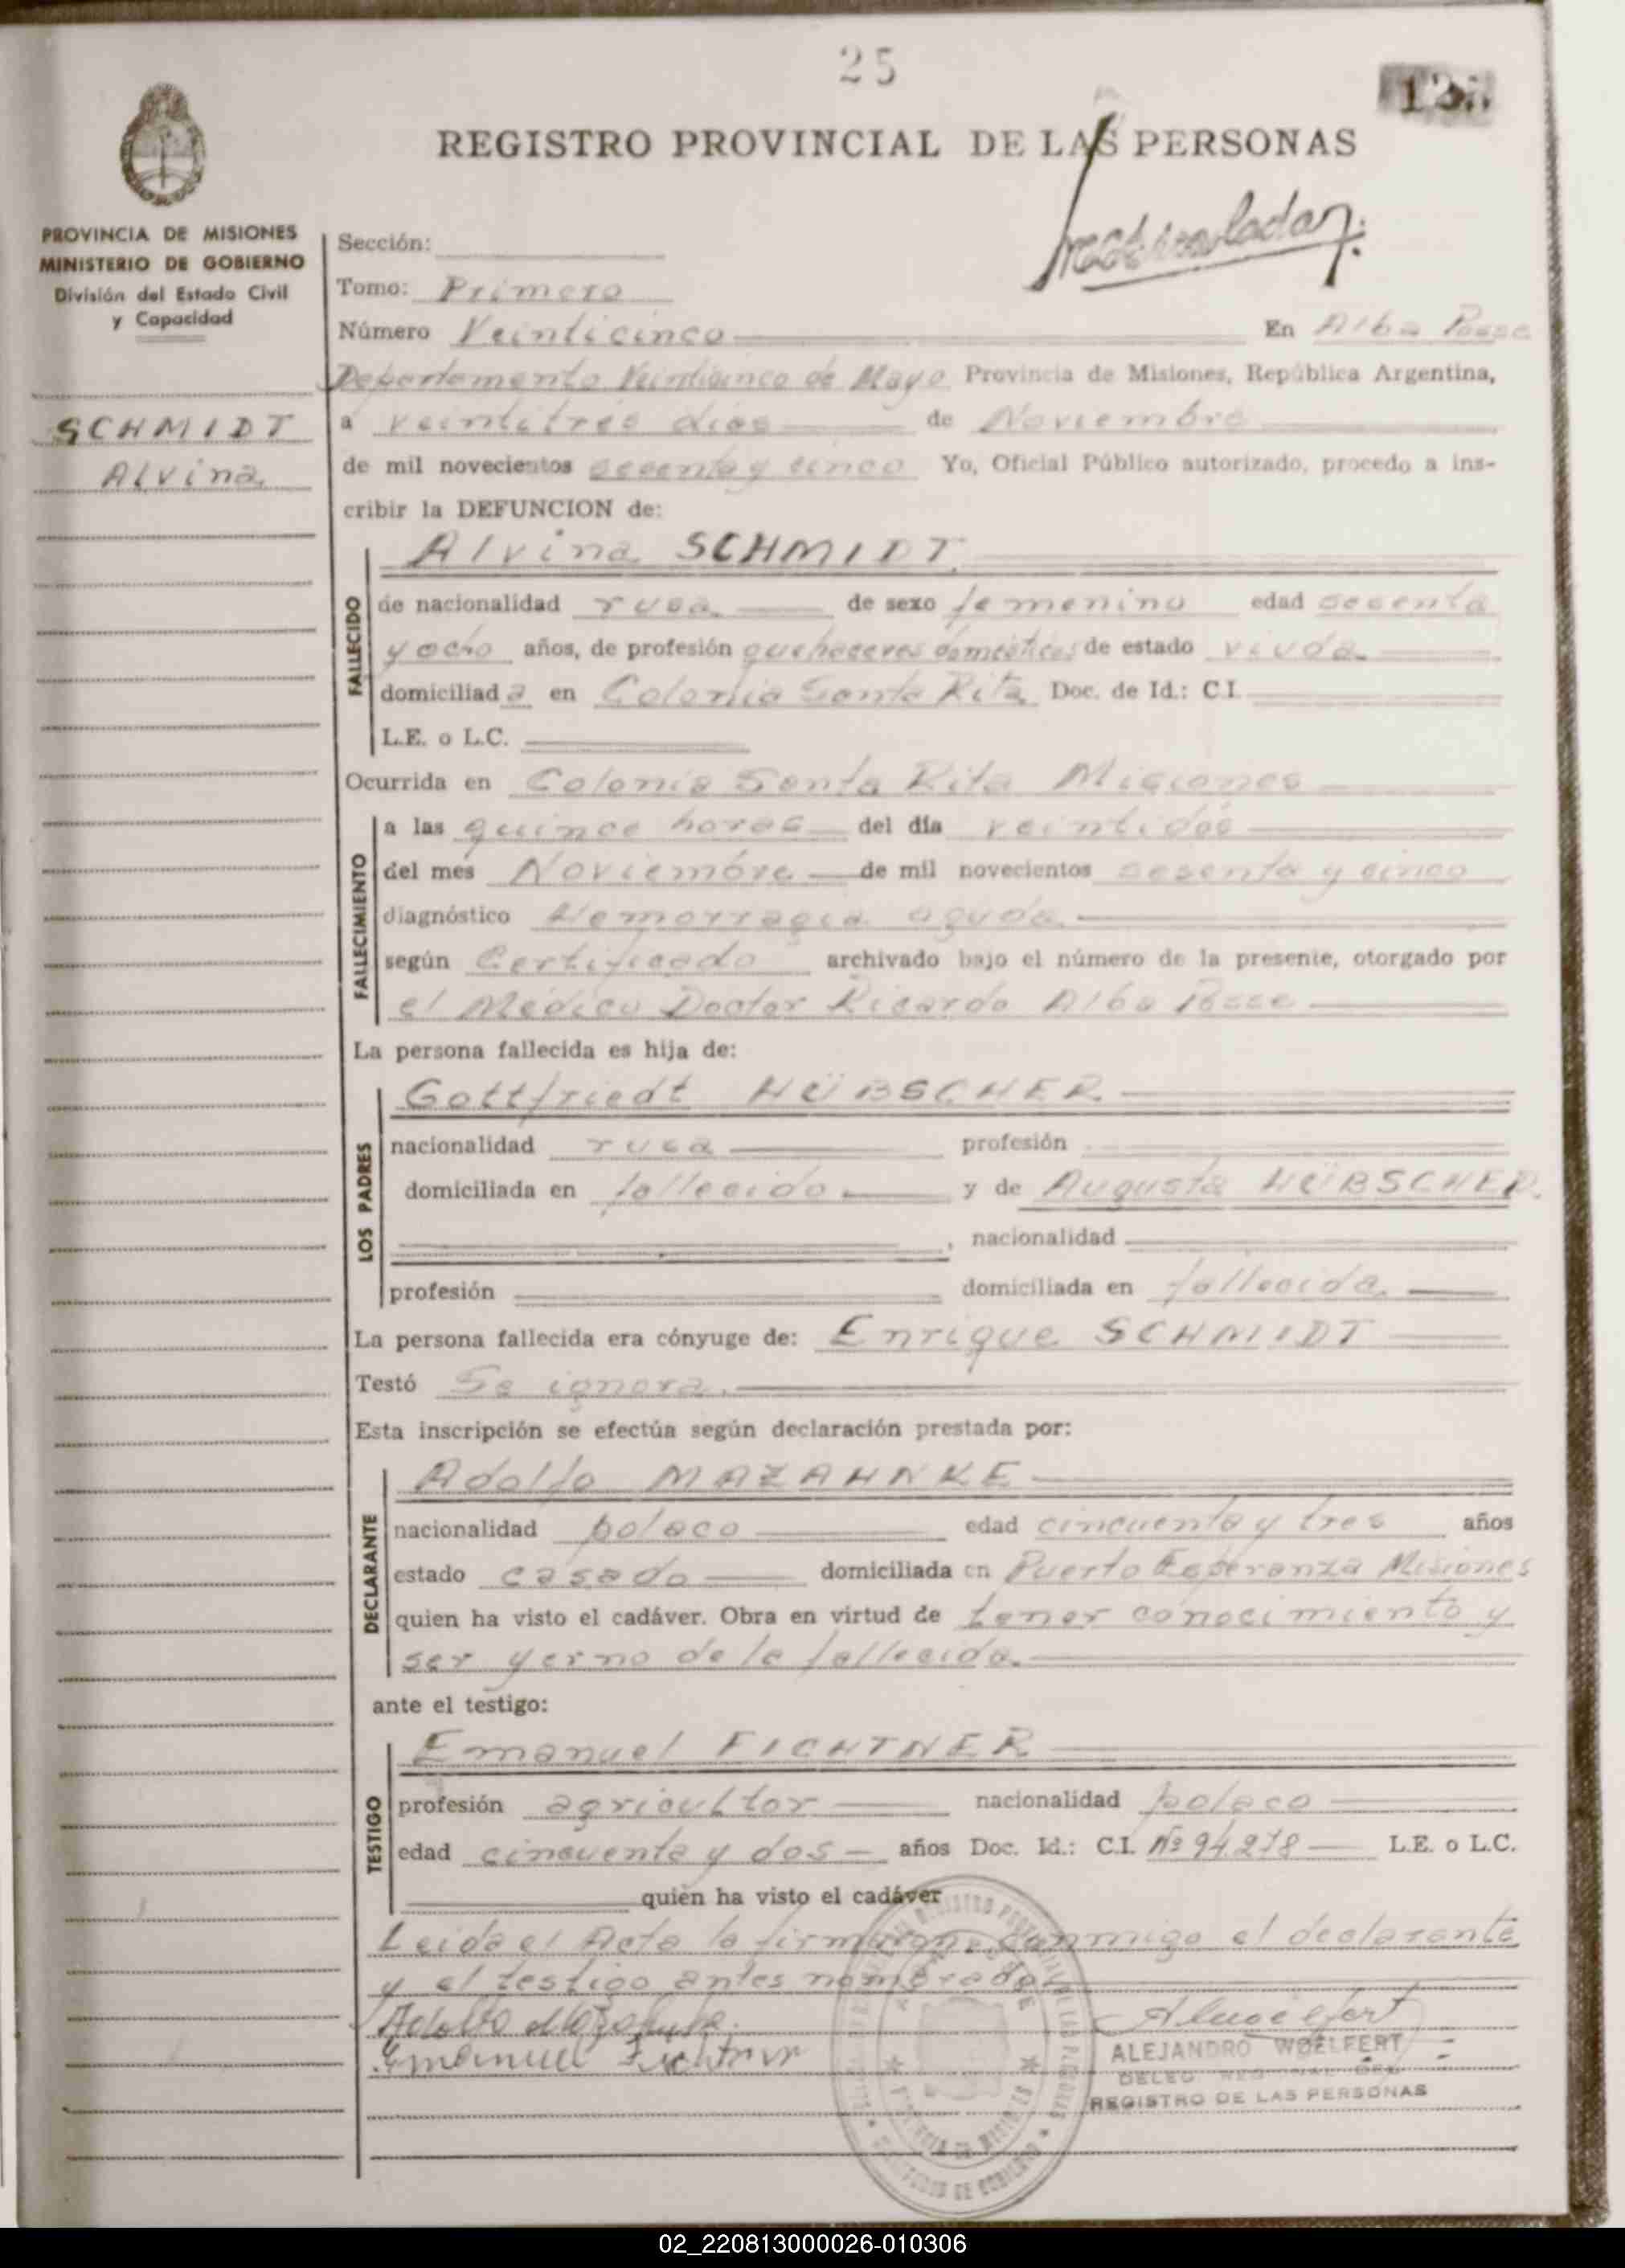 25
REGISTRO PROVINCIAL DE LAS PERSONAS
PROVINCIA DE MISIONES
MINISTERIO DE GOBIERNO
División del Estado Civil
y Capacidad
SCHMIDT
Alvina
Sección:
Tomo: Primero
Número Veinticinco En Alba Posse
Departamento Veinticinco de Mayo Provincia de Misiones, República Argentina,
a veintitres dias de Noviembre
de mil novecientos sesenta y cinco Yo, Oficial Público autorizado, procedo a ins-
cribir la DEFUNCION de:
Alvina SCHMIDT
FALLECIDO
de nacionalidad rusa de sexo femenino edad sesenta
y ocho años, de profesión quehaceres domésticos de estado viuda
domiciliada en Colonia Santa Rita Doc. de Id.: C.I.
L.E. o L.C.
Ocurrida en Colonia Santa Rita Misiones
FALLECIMIENTO
a las quince horas del día veintidos
del mes Noviembre de mil novecientos sesenta y cinco
diagnóstico Hemorragia aguda
según Certificado archivado bajo el número de la presente, otorgado por
el Médico Doctor Ricardo Alba Posse
La persona fallecida es hija de:
LOS PADRES
Gottfriedt HÜBSCHER
nacionalidad rusa profesión
domiciliada en fallecido y de Augusta HÜBSCHER
, nacionalidad
profesión domiciliada en fallecida
La persona fallecida era cónyuge de: Enrique SCHMIDT
Testó Se ignora.
Esta inscripción se efectúa según declaración prestada por:
DECLARANTE
Adolfo MAZAHNKE
nacionalidad polaco edad cincuenta y tres años
estado casado domiciliada en Puerto Esperanza Misiones
quien ha visto el cadáver. Obra en virtud de tener conocimiento y
ser yerno de la fallecida.
ante el testigo:
TESTIGO
Emanuel FICHTNER
profesión agricultor nacionalidad polaco
edad cincuenta y dos años Doc. Id.: C.I. Nº 94.278 L.E. o L.C.
quien ha visto el cadáver
Leida el Acta la firmaron conmigo el declarante
y el testigo antes nombrado
Adolfo Mazahnke
Emanuel Fichtner
ALEJANDRO WOELFERT
REGISTRO DE LAS PERSONAS
02_220813000026-010306